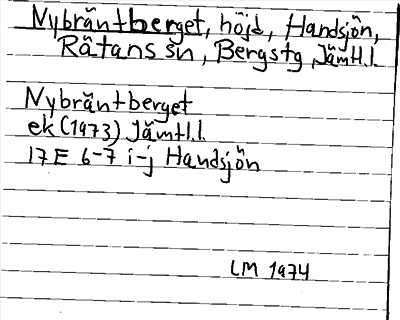 Nybräntberget, höjd, Handsjön,
Rätans sn, Bergstg, Jämtl.l.
Nybräntberget
ek (1973) Jämtl.l.
17E 6-7 i-j Handsjön
LM 1974